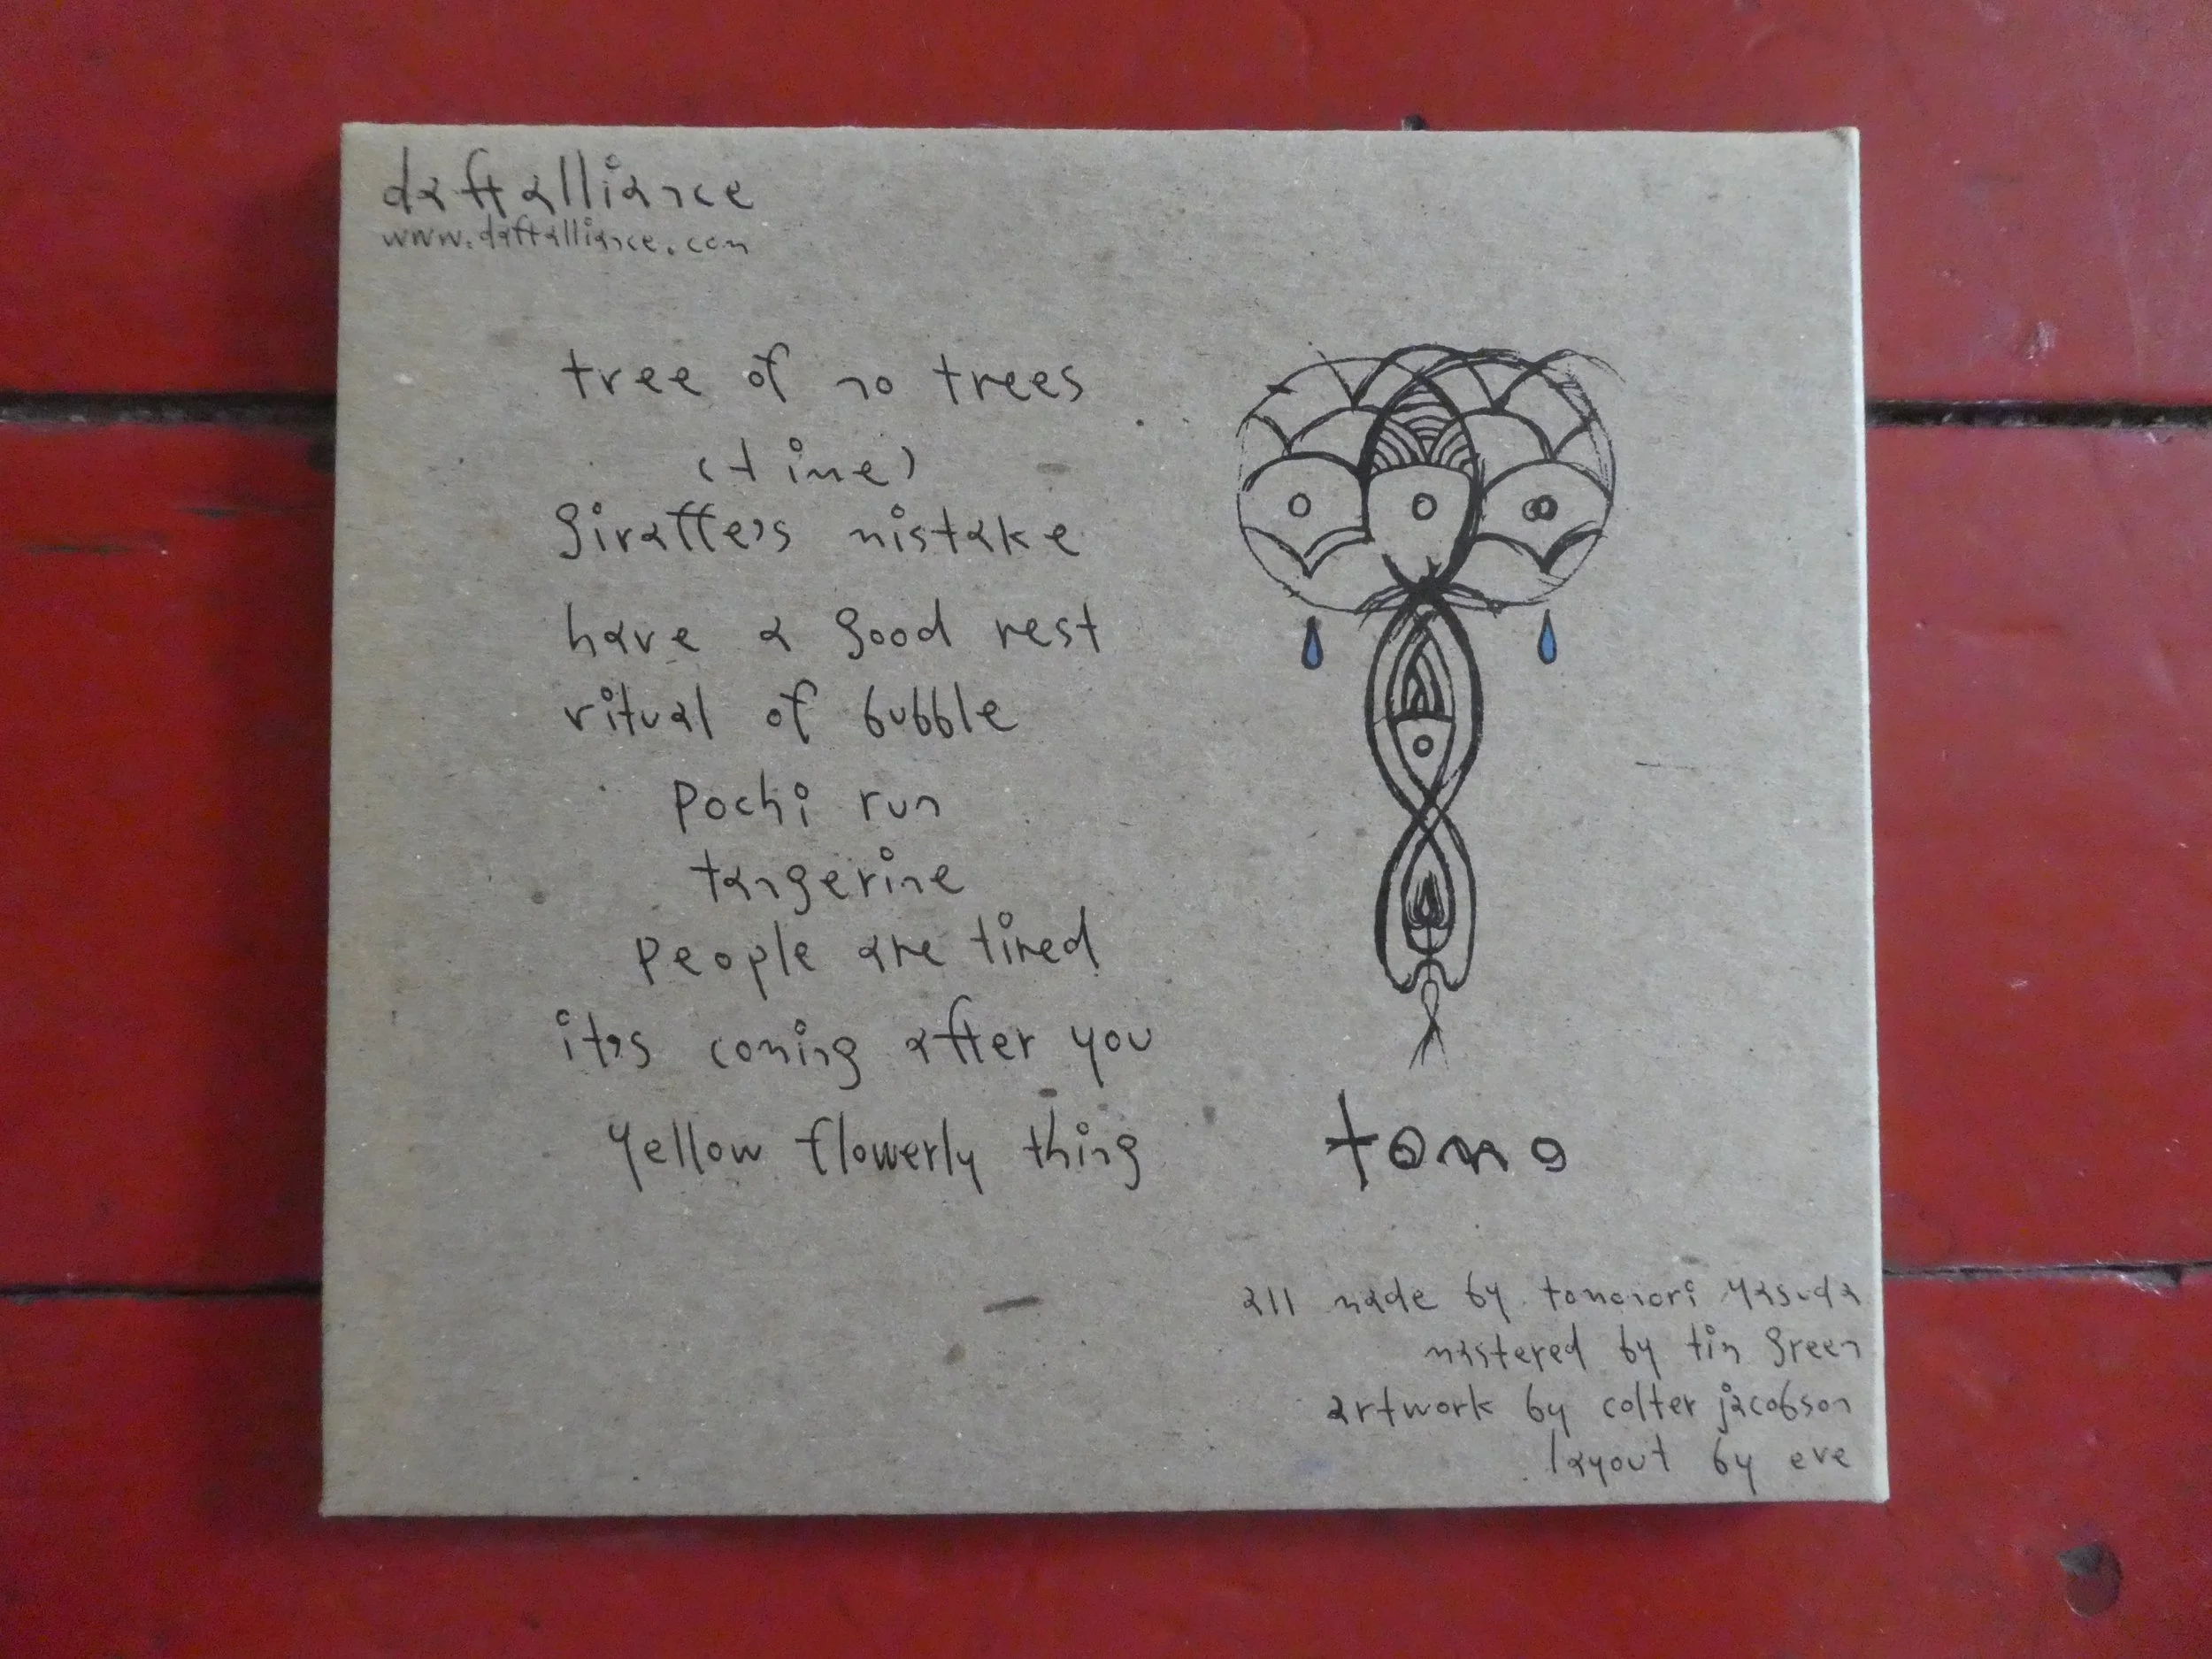 daftalliance
www.daftalliance.com
tree of no trees
(time)
giraffe's mistake
have a good rest
ritual of bubble
pochi run
tangerine
people are tired
it's coming after you
yellow flowerly thing
tomo
all made by tomonori yasuda
mastered by tim green
artwork by colter jacobson
layout by eve